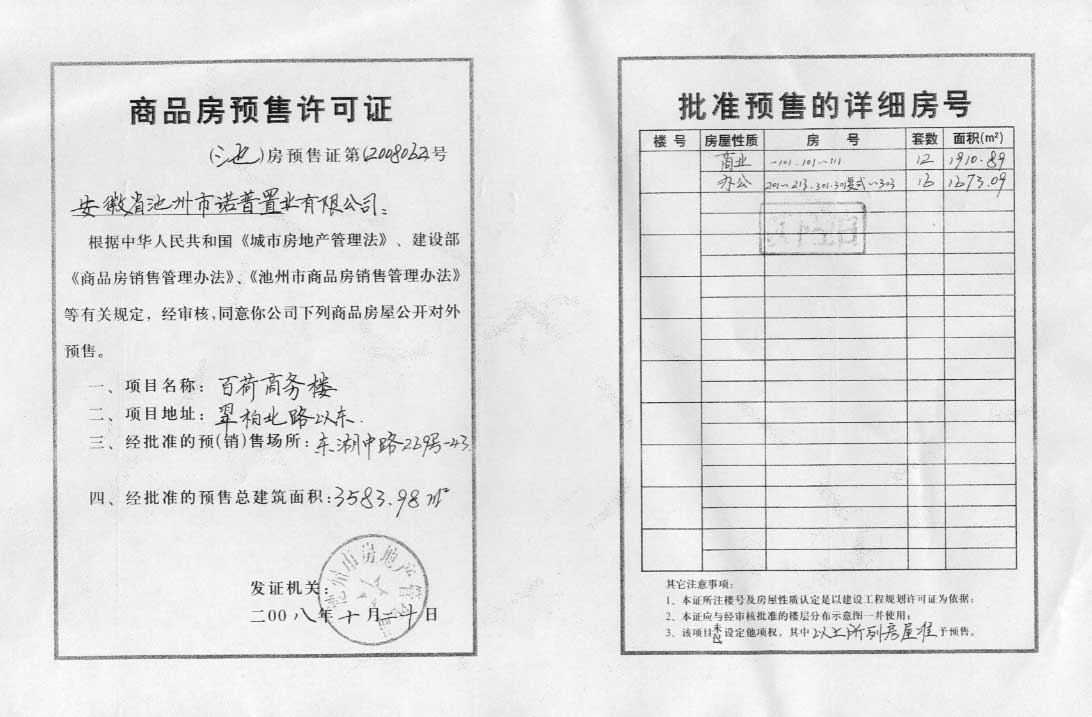 商品房预售许可证
(池)房预售证第(2008032号
安徽省池州市诺普置业有限公司:
根据中华人民共和国《城市房地产管理法》、建设部
《商品房销售管理办法》、《池州市商品房销售管理办法》
等有关规定,经审核,同意你公司下列商品房屋公开对外
预售。
一、项目名称:百荷商务楼
二、项目地址:翠柏北路以东.
三、经批准的预(销)售场所:东湖中路269号-43
四、经批准的预售总建筑面积:3583.98m²
发证机关:
二00八年十月二十日
池州市房地产管理
批准预售的详细房号
楼号 房屋性质 房号 套数 面积(m²)
商业 -101.101~111 12 1910.89
办公 201~213.301.301复式~303 16 1673.09
其它注意事项:
1、本证所注楼号及房屋性质认定是以建设工程规划许可证为依据;
2、本证应与经审核批准的楼层分布示意图一并使用;
3、该项目未设定他项权,其中以上所列房屋准予预售。